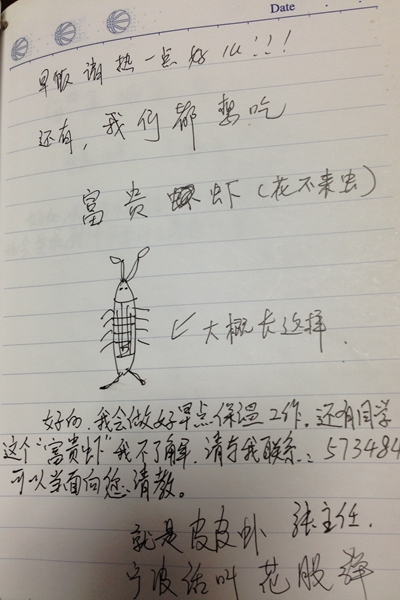 Date
早饭请热一点好心!!!
还有,我们都想吃
富贵虾(花不来虫)
大概长这样.
好的,我会做好早点保温工作.还有同学
这个"富贵虾"我不了解.请与我联系:573484
可以当面向您请教。
张主任.
就是皮皮虾
宁波话叫花股